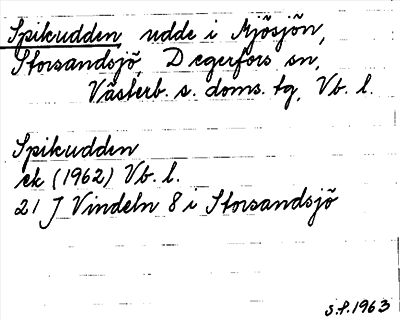 Spikudden udde i Mjösjön,
Storsandsjö, Degerfors sn,
Västerb. s. doms. tg, Vb. l.
Spikudden
ek (1962) Vb. l.
21 J Vindeln 8 i Storsandsjö
S.f. 1963